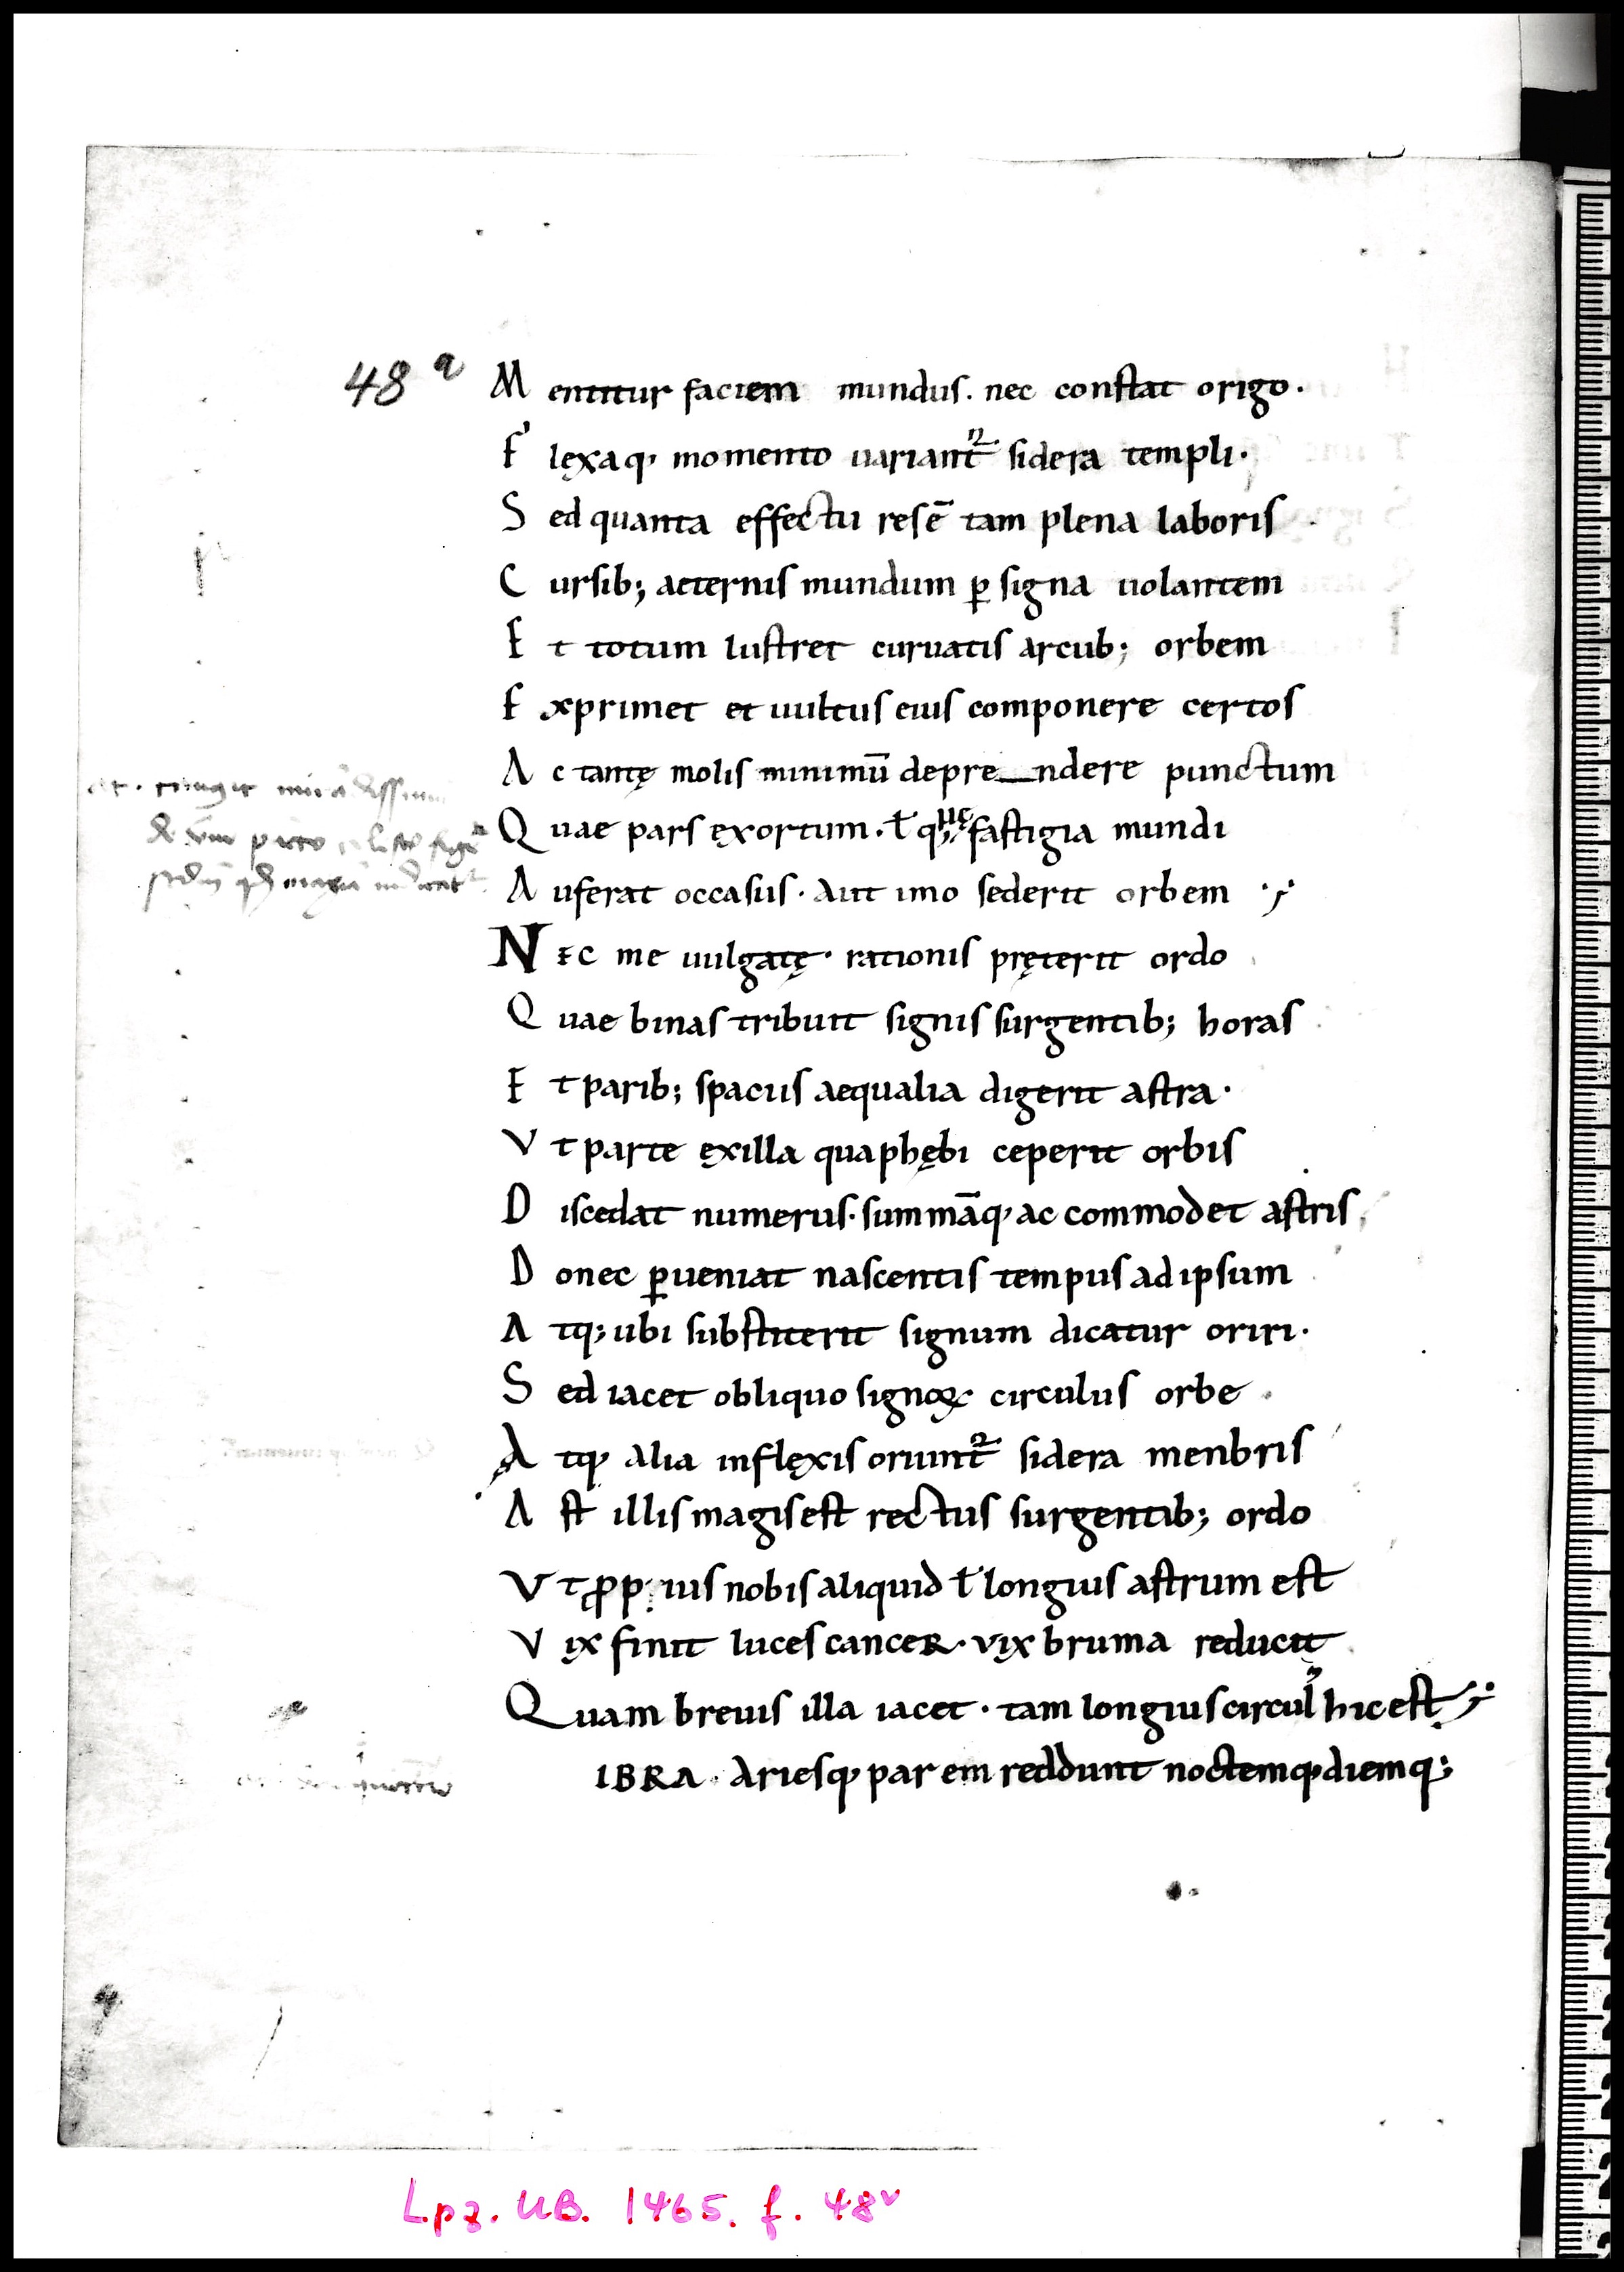 48 a
Mentitur faciem mundus. nec constat origo.
Flęxaq; momento uariant᷑ sidera templi.
Sed quanta effectu res ē tam plena laboris
Cursib; aeternis mundum ꝑ signa uolantem
Et totum lustret curuatis arcub; orbem
Exprimet et uultus eius componere certos
Ac tantę molis minimū depre_ndere punctum
Quae pars ęxortum. ł quae fastigia mundi
Auferat occasus. Aut imo sederit orbem
NEC me uulgatę. rationis pręterit ordo
Quae binas tribuit signis surgentib; horas
Et parib; spaciis aequalia digerit astra.
Vt parte ęxilla qua phębi ceperit orbis
Discedat numerus. summāq; ac commodet astris
Donec ꝑueniat nascentis tempus ad ipsum
Atq; ubi substiterit signum dicatur oriri.
Sed iacet obliquo signoꝝ circulus orbe.
Atq; alia inflęxis oriunt᷑ sidera menbris
Ast illis magis est rectus surgentib; ordo
Vt ꝓp ius nobis aliquid ł longius astrum est
Vix finit luces canceR. vix bruma reducit
Quam breuis illa iacet. tam longius circul᾽ hic est
IBRA. Ariesq; parem reddunt noctemq; diemq;
Lpz. UB. 1465. f. 48v